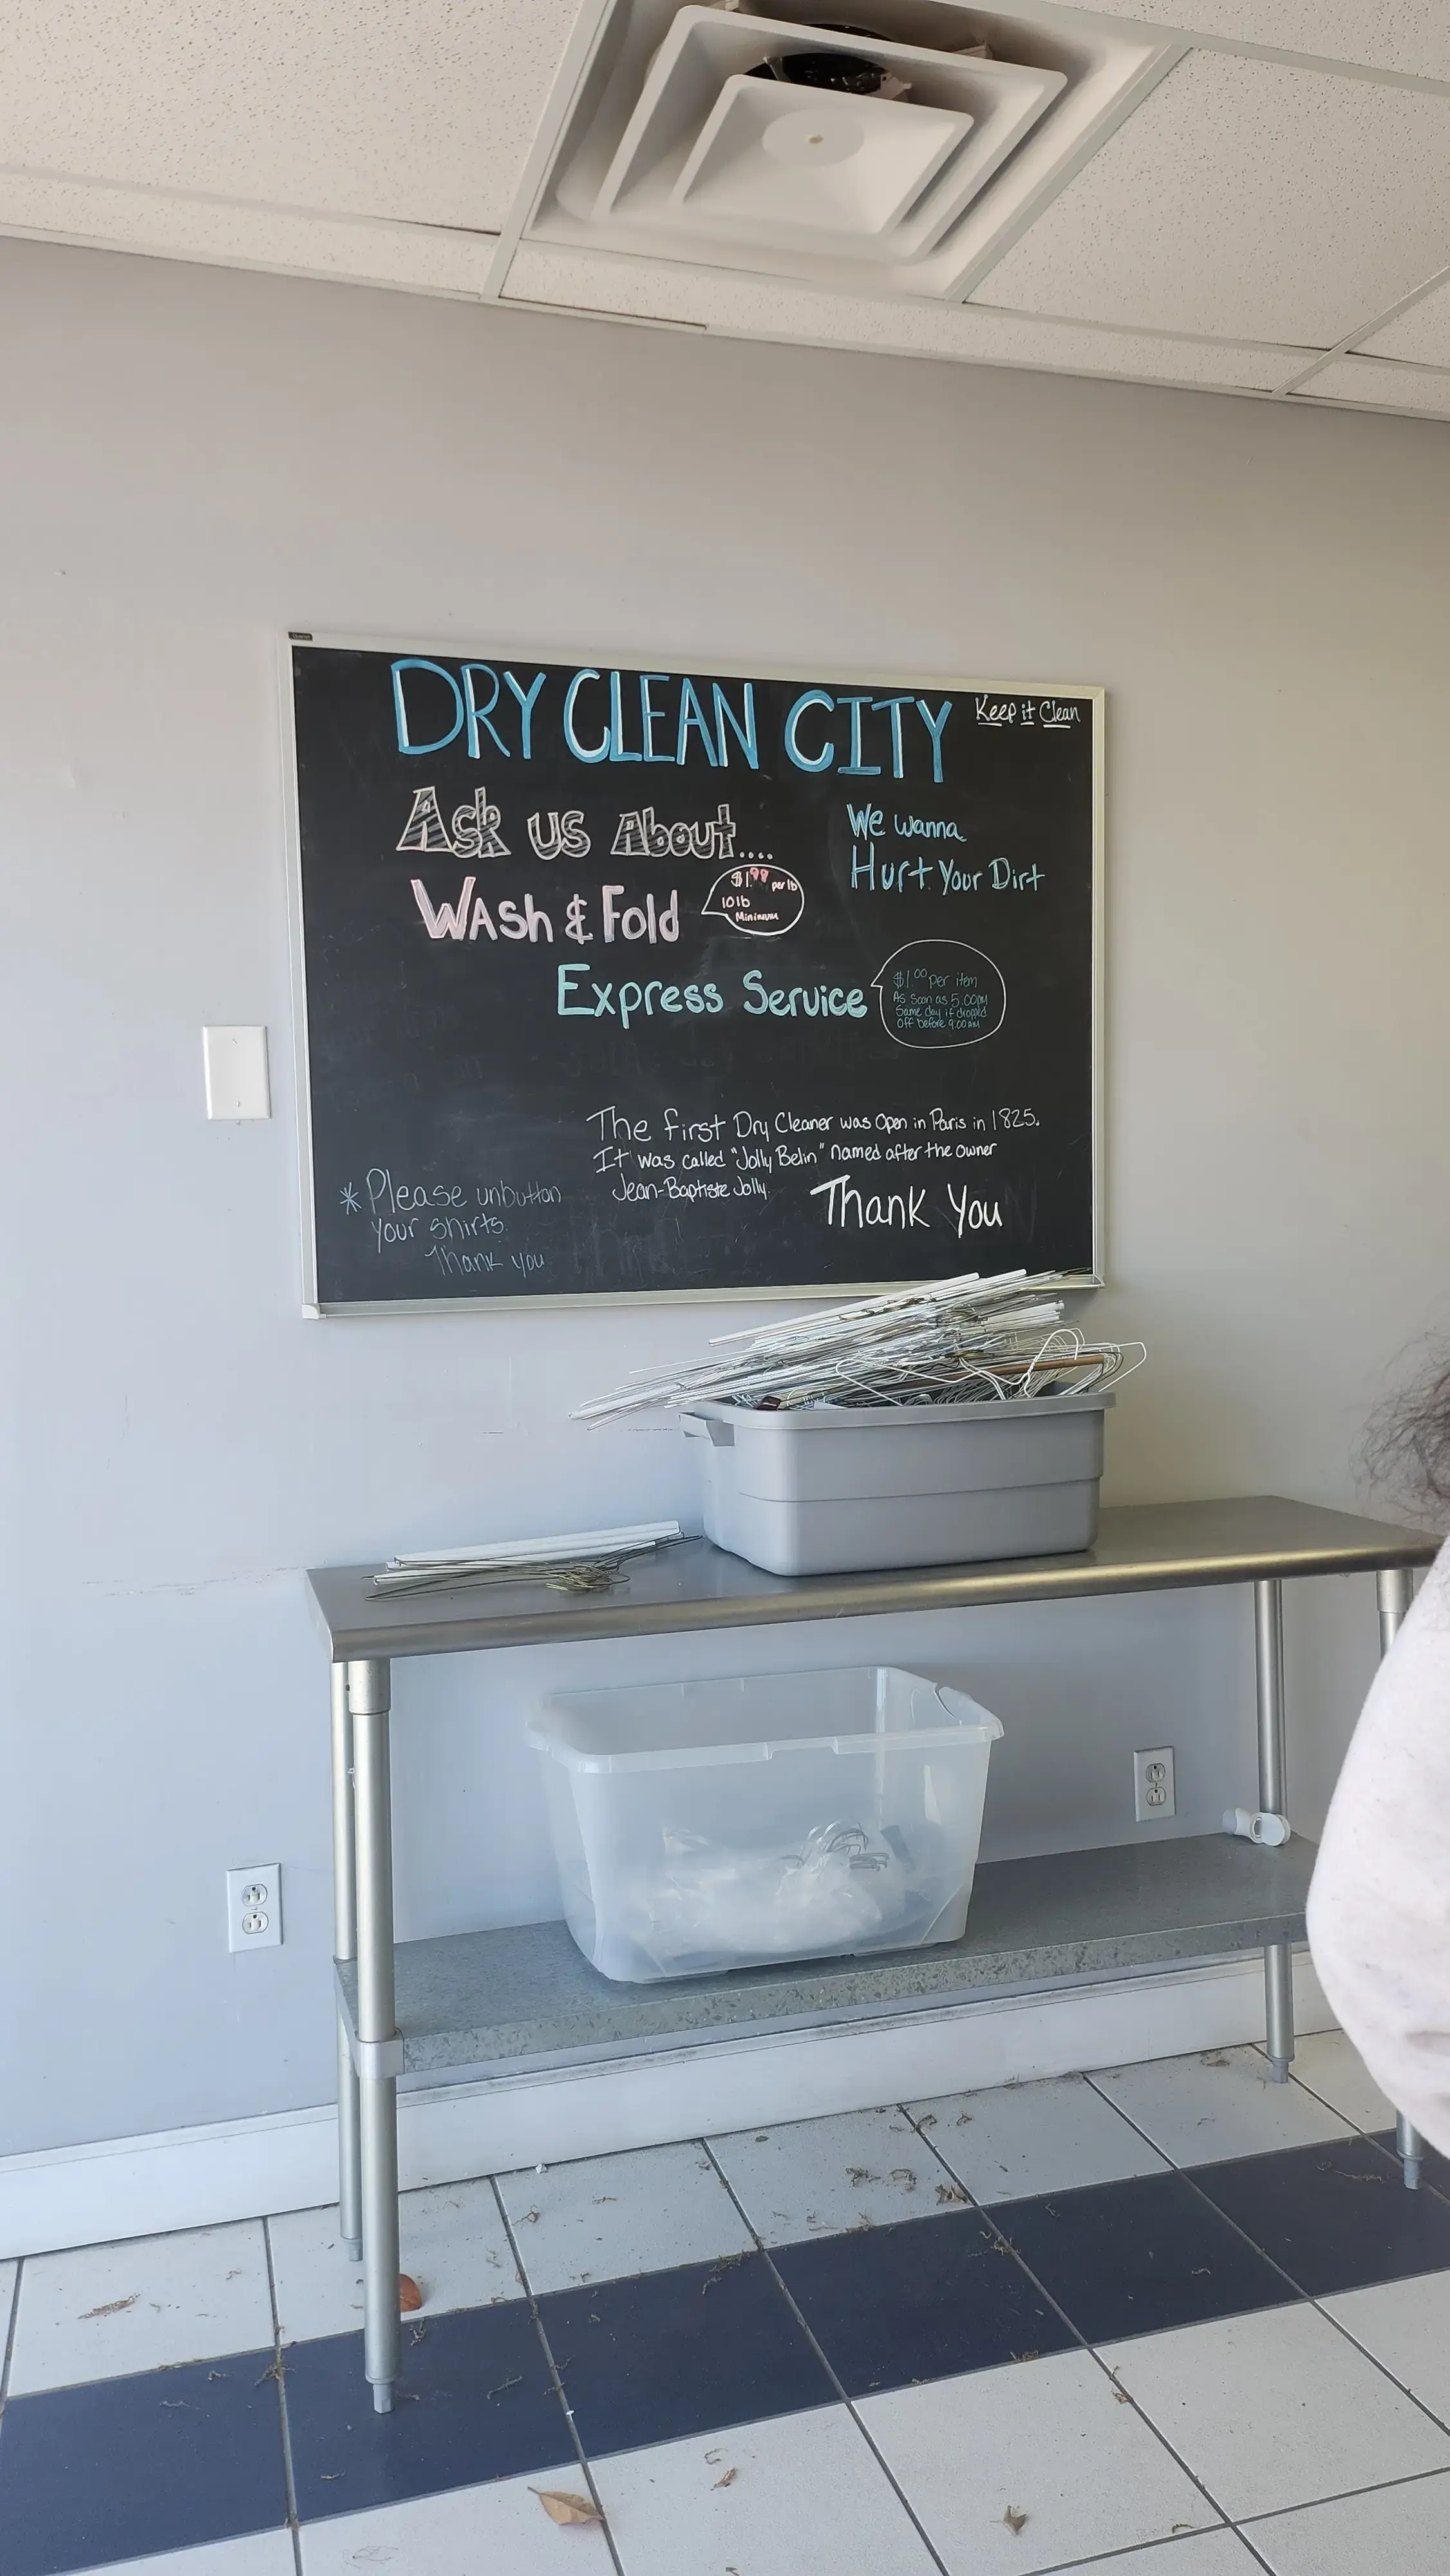 DRY CLEAN CITY
Keep it Clean
Ask us About....
We wanna
Hurt Your Dirt
Wash & Fold
$1.99 per lb
10lb
Minimum
Express Service
$1.00 per item
As soon as 5:00pm
Same day if dropped
Off before 9:00am
The first Dry Cleaner was Open in Paris in 1825.
It was called "Jolly Belin" named after the owner
Jean-Baptiste Jolly.
Thank You
* Please unbutton
your shirts.
Thank you